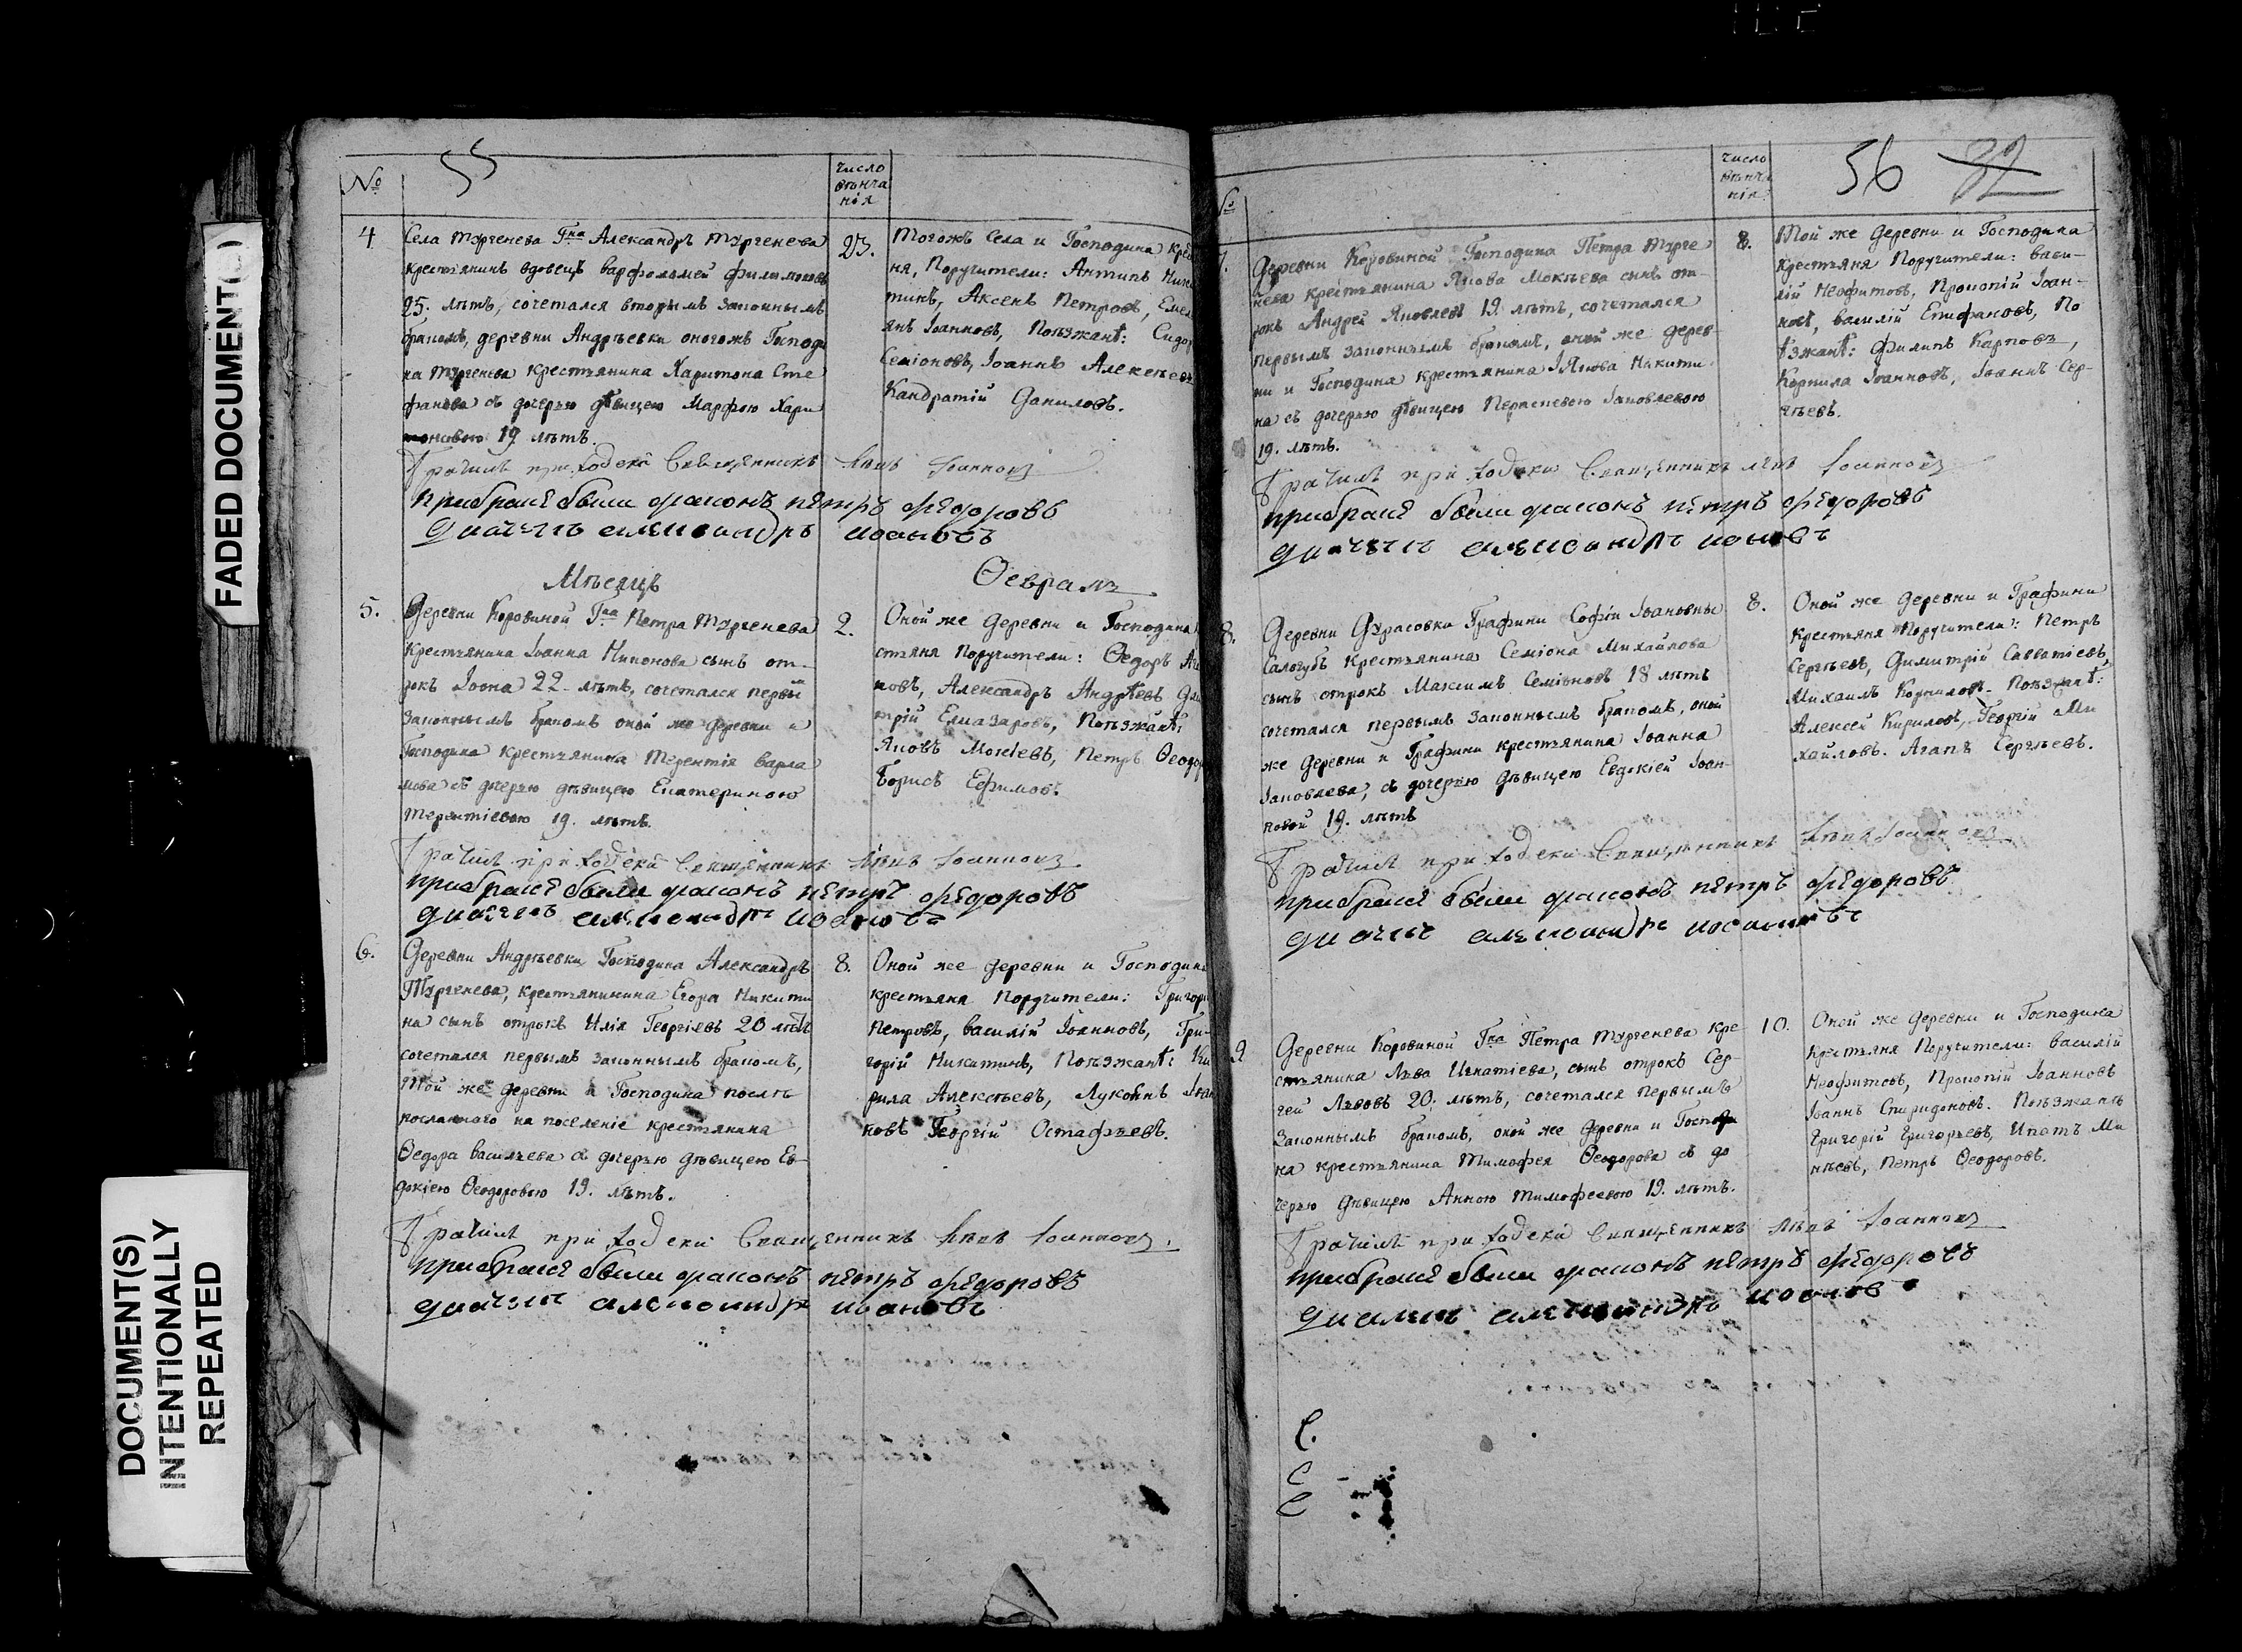 FADED DOCUMENT(S)
DOCUMENT(S)
INTENTIONALLY
REPEATED
55
№
число
вѣнча
нія
4
Села Тургенева Гна Александръ Тургенева
крестьянинъ вдовецъ варфоломей филимоновъ
25. лѣтъ, сочетался вторымъ законнымъ
бракомъ, деревни Андрѣевки оногожъ Господи
на Тургенева крестьянина Харитона Сте
фанова съ дочерью дѣвицею Марфою Хари
тоновою 19 лѣтъ.
23.
Тогожъ села и Господина кре
ня, Поручители: Антипъ Ники
тинъ, Аксенъ Петровъ, Емел
янъ Іоанновъ, Поѣзжанѣ: Сидор
Семіоновъ, Іоаннъ Алексѣевъ
Кандратій Даниловъ.
приходскій Священникъ Іоанновъ
прибракѣ были диаконъ пѣтръ фѣдоровъ
дьячекъ александръ иоановъ
Мѣсяцъ
Ѳевраль
5.
Деревни Коровиной Гна Петра Тургенева
Крестьянина Іоанна Никонова сынъ от-
рокъ Іоона 22 лѣтъ, сочетался первы
законнымъ бракомъ оной же деревни и
Господина крестьянина Терентія варла
мова съ дочерью дѣвицею Екатериною
Терентіевою 19. лѣтъ.
2.
Оной же деревни и Господина
стьяня Поручители: Ѳедоръ
новъ, Александръ Андрѣевъ Ди
трій Елиазаровъ, Поѣзжанѣ:
Яковъ Петръ Ѳеодор
Борисъ Ефимовъ.
приходскій Священникъ Іоанновъ
прибракѣ были диаконъ пѣтръ фѣдоровъ
дьячекъ александръ иоановъ
6.
Деревни Андрѣевки Господина Александръ
Тургенева, крестьянинина Егора Никити
на сынъ отрокъ Илія Георгіевъ 20 лѣтъ
сочетался первымъ законнымъ бракомъ,
Той же деревни и Господина послѣ
посланнаго на поселеніе крестьянина
Ѳедора васильева съ дочерью дѣвицею Ев-
докіею Ѳеодоровою 19. лѣтъ.
8.
Оной же деревни и Господина
крестьяня Поручители: Григори
Петровъ, василій Іоанновъ, Гри-
горій Никитинъ, Поѣзжанѣ: Ки
рила Алексѣевъ, Лукоянъ Іоан
новъ Георгій Остафьевъ.
приходскій Священникъ Іоанновъ
прибракѣ были диаконъ пѣтръ фѣдоровъ
дьячекъ александръ иоановъ
число
вѣнча
нія
56 32
7.
Деревни Коровиной Господина Петра Турге
нева крестьянина Якова Мокѣева сынъ от-
рокъ Андрей Яковлевъ 19. лѣтъ, сочетался
первымъ законнымъ бракомъ, оной же дерев-
ни и Господина крестьянина Якова Никити
на съ дочерью дѣвицею Яковлевою
19. лѣтъ.
8.
Той же деревни и Господина
крестьяня Поручители: васи-
лій Неофитовъ, Прокопій Іоан-
новъ, василій Епифановъ, По
ѣзжанѣ: Филипъ Карповъ,
Корнила Іоанновъ, Іоаннъ Сер-
гѣевъ.
приходскій Священникъ Іоанновъ
прибракѣ были диаконъ пѣтръ фѣдоровъ
дьячекъ александръ иоановъ
8.
Деревни Дурасовки Графини Софіи Іоановны
Салогубъ крестьянина Семіона Михайлова
сынъ отрокъ Максимъ Семіоновъ 18 лѣтъ
сочетался первымъ законнымъ бракомъ, оной
же деревни и Графини крестьянина Іоанна
Іаковлева, съ дочерью дѣвицею Евдокіей Іоан-
новой 19. лѣтъ
8.
Оной же деревни и Графини
крестьяня Поручители: Петръ
Сергѣевъ, Димитрій Савватіевъ,
Михаилъ Корниловъ. Поѣзжанѣ:
Алексей Кириловъ, Георгій Ми
хайловъ. Агапъ Сергѣевъ.
приходскій Священникъ Іоанновъ
прибракѣ были диаконъ пѣтръ фѣдоровъ
дьячекъ александръ иоановъ
9.
Деревни Коровиной Гна Петра Тургенева кре
стьянина Льва Игнатіева, сынъ отрокъ Сер-
гей Львовъ 20. лѣтъ, сочетался первымъ
законнымъ бракомъ, оной же деревни и Господи
на крестьянина Тимофея Ѳеодорова съ до
черью дѣвицею Анною Тимофеевою 19. лѣтъ.
10.
Оной же деревни и Господина
крестьяня Поручители: василій
Неофитовъ, Прокопій Іоанновъ
Іоаннъ Спиридоновъ. Поѣзжанѣ
Григорій Григорьевъ, Ипатъ Ми
нѣевъ, Петръ Ѳеодоровъ.
приходскій Священникъ Іоанновъ
прибракѣ были диаконъ пѣтръ фѣдоровъ
александръ иоановъ
С.
С
С